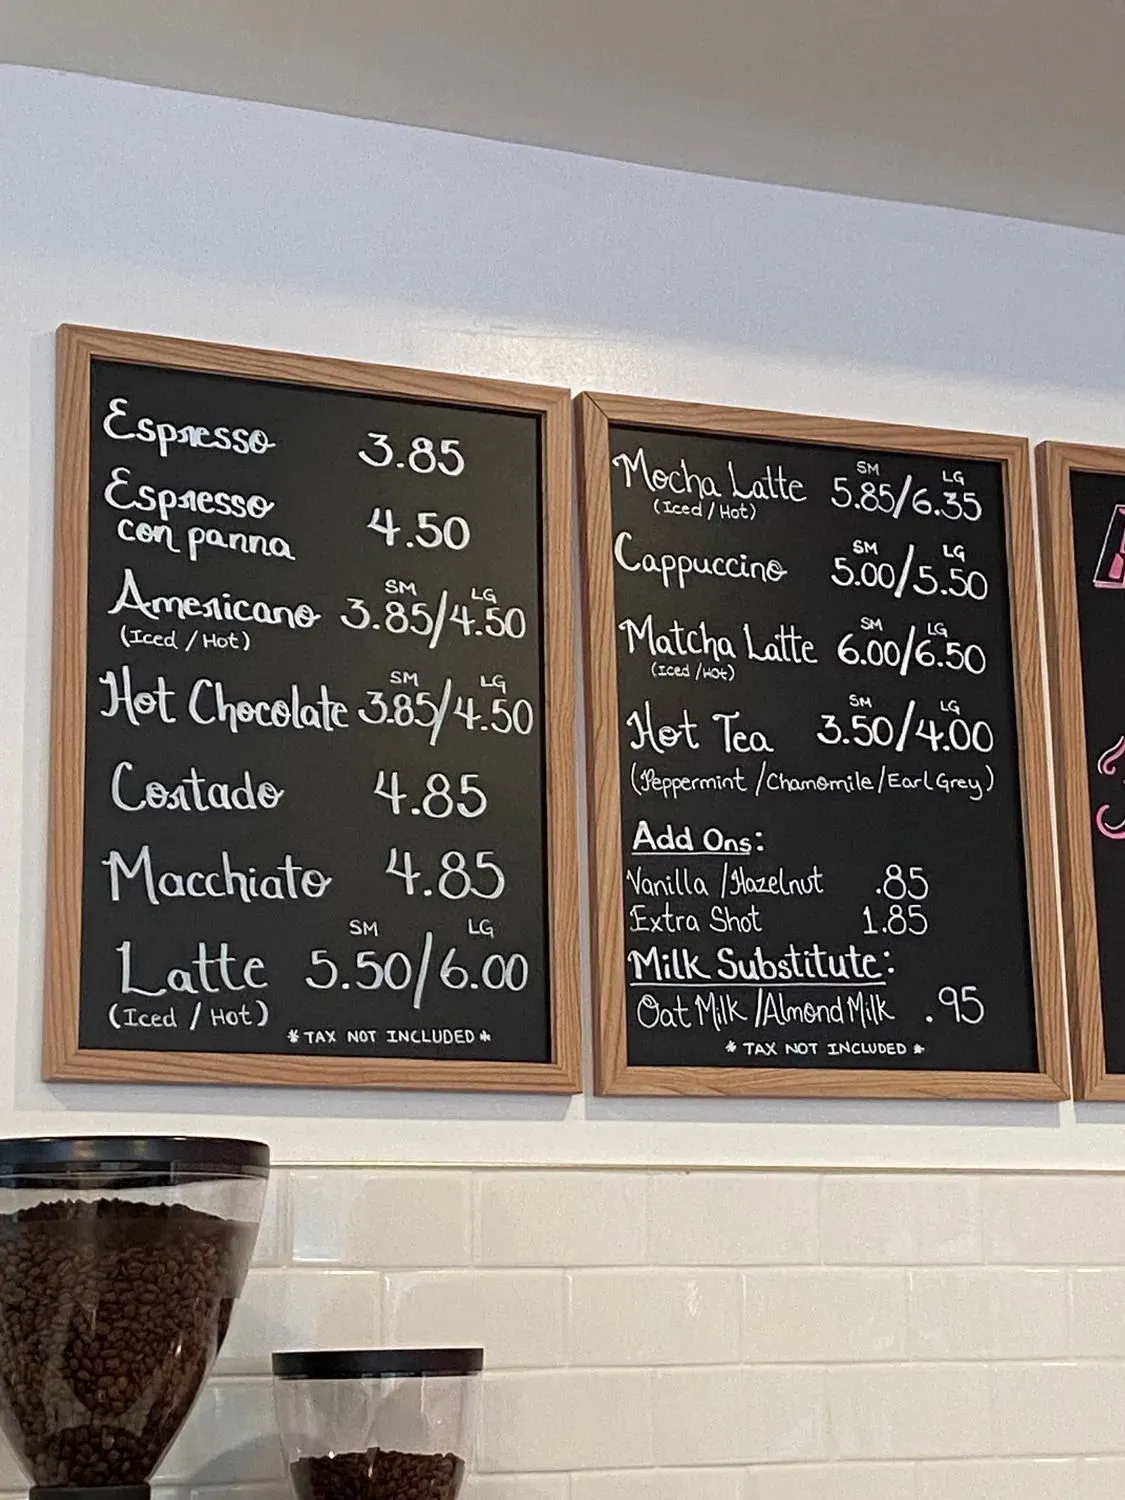 Espresso 3.85
Espresso
con panna 4.50
SM LG
Americano 3.85/4.50
(Iced / Hot)
SM LG
Hot Chocolate 3.85/4.50
Cortado 4.85
Macchiato 4.85
SM LG
Latte 5.50/6.00
(Iced / Hot)
* TAX NOT INCLUDED *
SM LG
Mocha Latte 5.85/6.35
(Iced / Hot)
SM LG
Cappuccino 5.00/5.50
SM LG
Matcha Latte 6.00/6.50
(Iced / Hot)
SM LG
Hot Tea 3.50/4.00
(Peppermint / Chamomile / Earl Grey)
Add Ons:
Vanilla / Hazelnut .85
Extra Shot 1.85
Milk Substitute:
Oat Milk / Almond Milk .95
* TAX NOT INCLUDED *